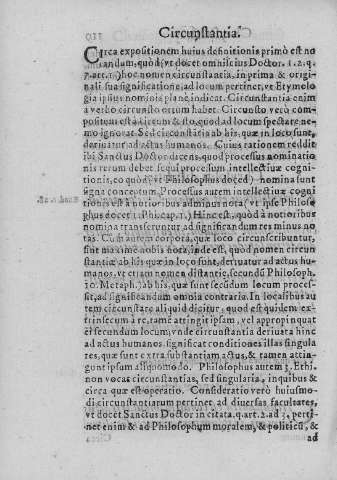 Circunstantia.
Circa expositionem huius definitionis primò est no
tandum, quòd (vt docet omniscius Doctor. 1.2.q.
7.art.1.) hoc nomen circunstantia, in prima & origi
nali sua significatione, ad locum pertinet, vt Etymolo
gia ipsius nominis planè indicat. Circunstantia enim
a verbo circunsto ortum habet. Circunsto verò com
positum est à circum & sto, quod ad locum spectare ne-
mo ignorat. Sed circunstātia ab his, quæ in loco sunt,
deriuatur ad actus humanos. Cuius rationem reddit
ibi Sanctus Doctor dicens, quod processus nominatio
nis rerum debet sequi processum intellectiuæ cogni
tionis, eo quòd (vt Philosophus docet) nomina sunt
signa conceptuum. Processus autem intellectiuæ cogni
tionis est à notioribus ad minus nota (vt ipse Philoso
phus docet 1. Phi. cap. 1.) Hinc est, quòd à notioribus
nomina transeruntur ad significandum res minus no
tas. Cum autem corpora, quæ loco circunscribuntur,
sint maximè nobis nota, inde est, quòd nomen circun
stantiæ ab his quæ in loco sunt, deriuatur ad actus hu-
manos. vt etiam nomen distantiæ, secundū Philosoph.
10. Metaph.) ab his, quæ sunt secūdum locum proces-
sit, ad significandum omnia contraria. In localibus au
tem circunstare aliquid dicitur, quod est quidem ex-
trinsecum à re, tamē attingit ipsam, vel appropinquat
ei secundum locum, vnde circunstantia deriuata hinc
ad actus humanos significat conditiones illas singula
res, quæ sunt extra substantiam actus, & tamen attin-
gunt ipsum aliquomodo. Philosophus autem 3. Ethi.
non vocat circunstantias, sed singularia, in quibus &
circa quæ est operatio. Consideratio verò huiusmo-
di circunstantiarum pertinet ad diuersas facultates,
vt docet Sanctus Doctor in citata. q. art. 2. ad 3. perti-
net enim & ad Philosophum moralem, & politicū, &
ad